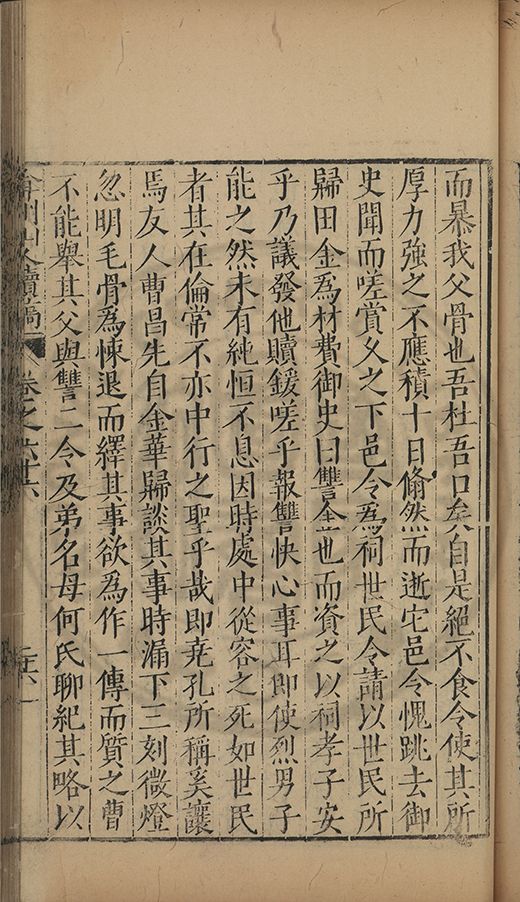 而暴我父骨也吾杜吾口矣自是絕不食令使其所
厚力強之不應積十日翛然而逝它邑令愧跳去御
史聞而嗟賞久之下邑令為祠世民令請以世民所
歸田金為材費御史曰讐金也而資之以祠孝子安
乎乃議發他贖鍰嗟乎報讐快心事耳即使烈男子
能之然未有純恒不息因時處中從容之死如世民
者其在倫常不亦中行之聖乎哉即尭孔所稱奚讓
焉友人曹昌先自金華歸談其事時漏下三刻微燈
忽明毛骨為悚退而繹其事欲為作一傳而質之曹
不能舉其父與讐二令及弟名母何氏聊紀其略以
弇州山人續稿 卷之六十六